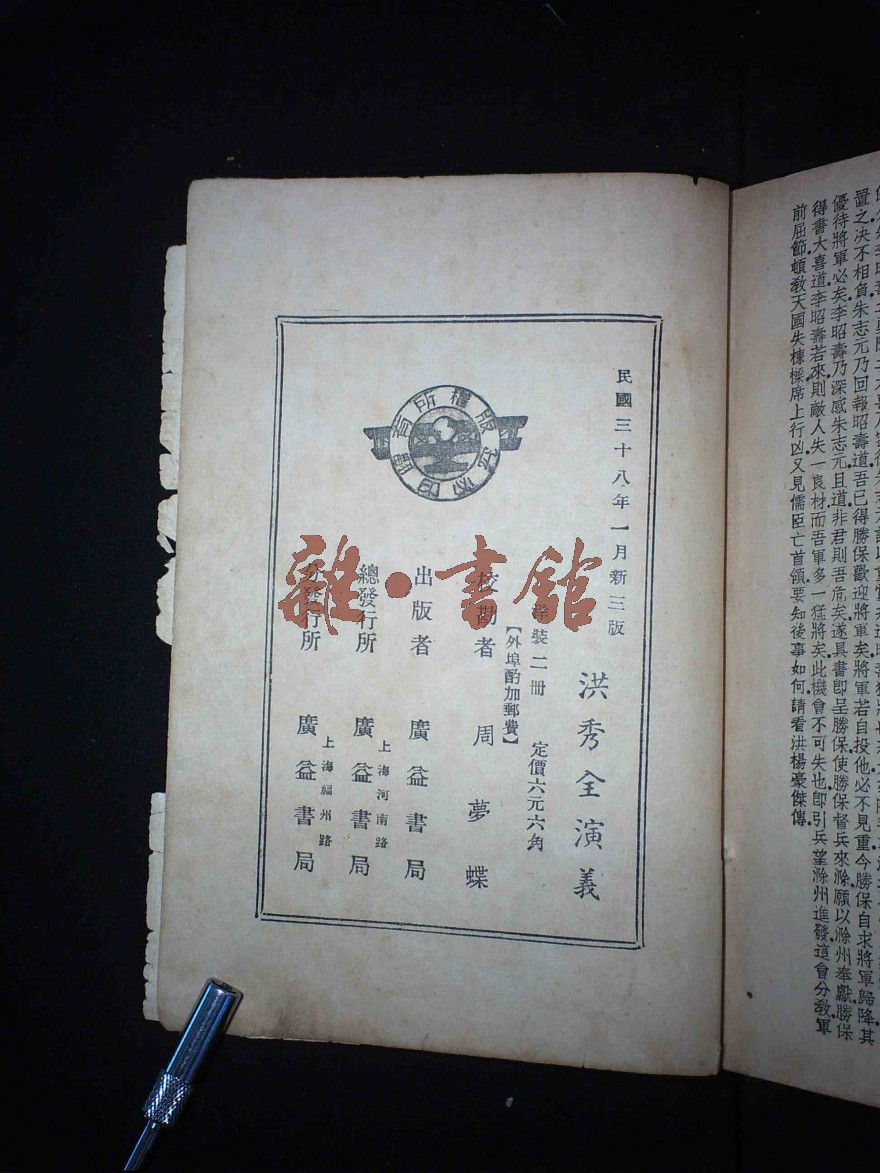 置之決不相負.朱志元乃回報昭壽道吾已得勝保歡迎將軍矣.將軍若自投他必不見重.今勝保自求將軍歸降.其
優待將軍必矣.李昭壽乃深感朱志元.且道非君則吾危矣.遂具書卽呈勝保.使勝保督兵來滁.願以滁州奉獻.勝保
得書大喜道李昭壽若來.則敵人失一良材.而吾軍多一猛將矣.此機會不可失也.卽引兵望滁州進發.這會分敎軍
前屈節.頓敎天國失棟樑.席上行凶.又見儒臣亡首領.要知後事如何.請看洪楊豪傑傳.
民國三十八年一月新三版
洪秀全演義
裝二冊 定價六元六角
【外埠酌加郵費】
校勘者 周夢蝶
出版者 廣益書局
上海河南路
總發行所 廣益書局
上海福州路
分發行所 廣益書局
版權所有
雜·書館